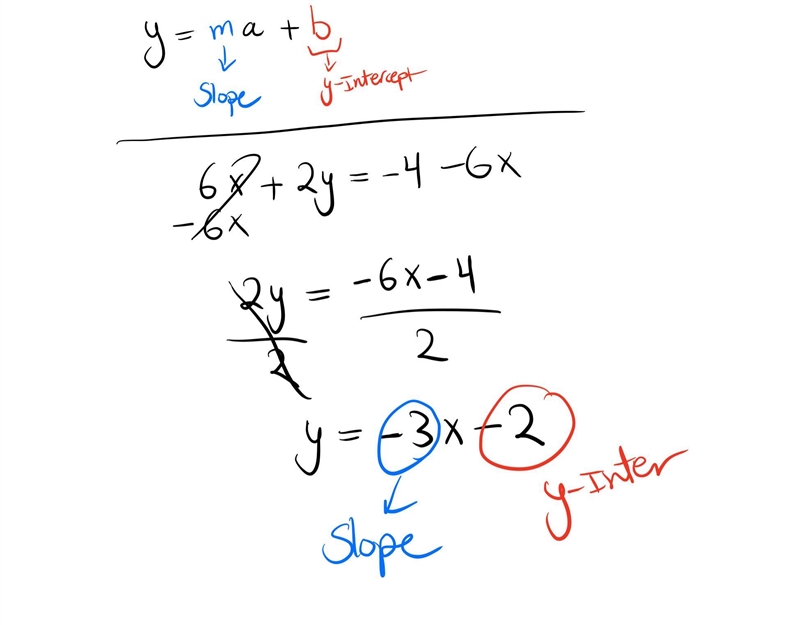 y = ma + b
Slope
y-Intercept
6x + 2y = -4 -6x
-6x
2y = -6x-4
2 2
y = -3x -2
y-Inter
Slope